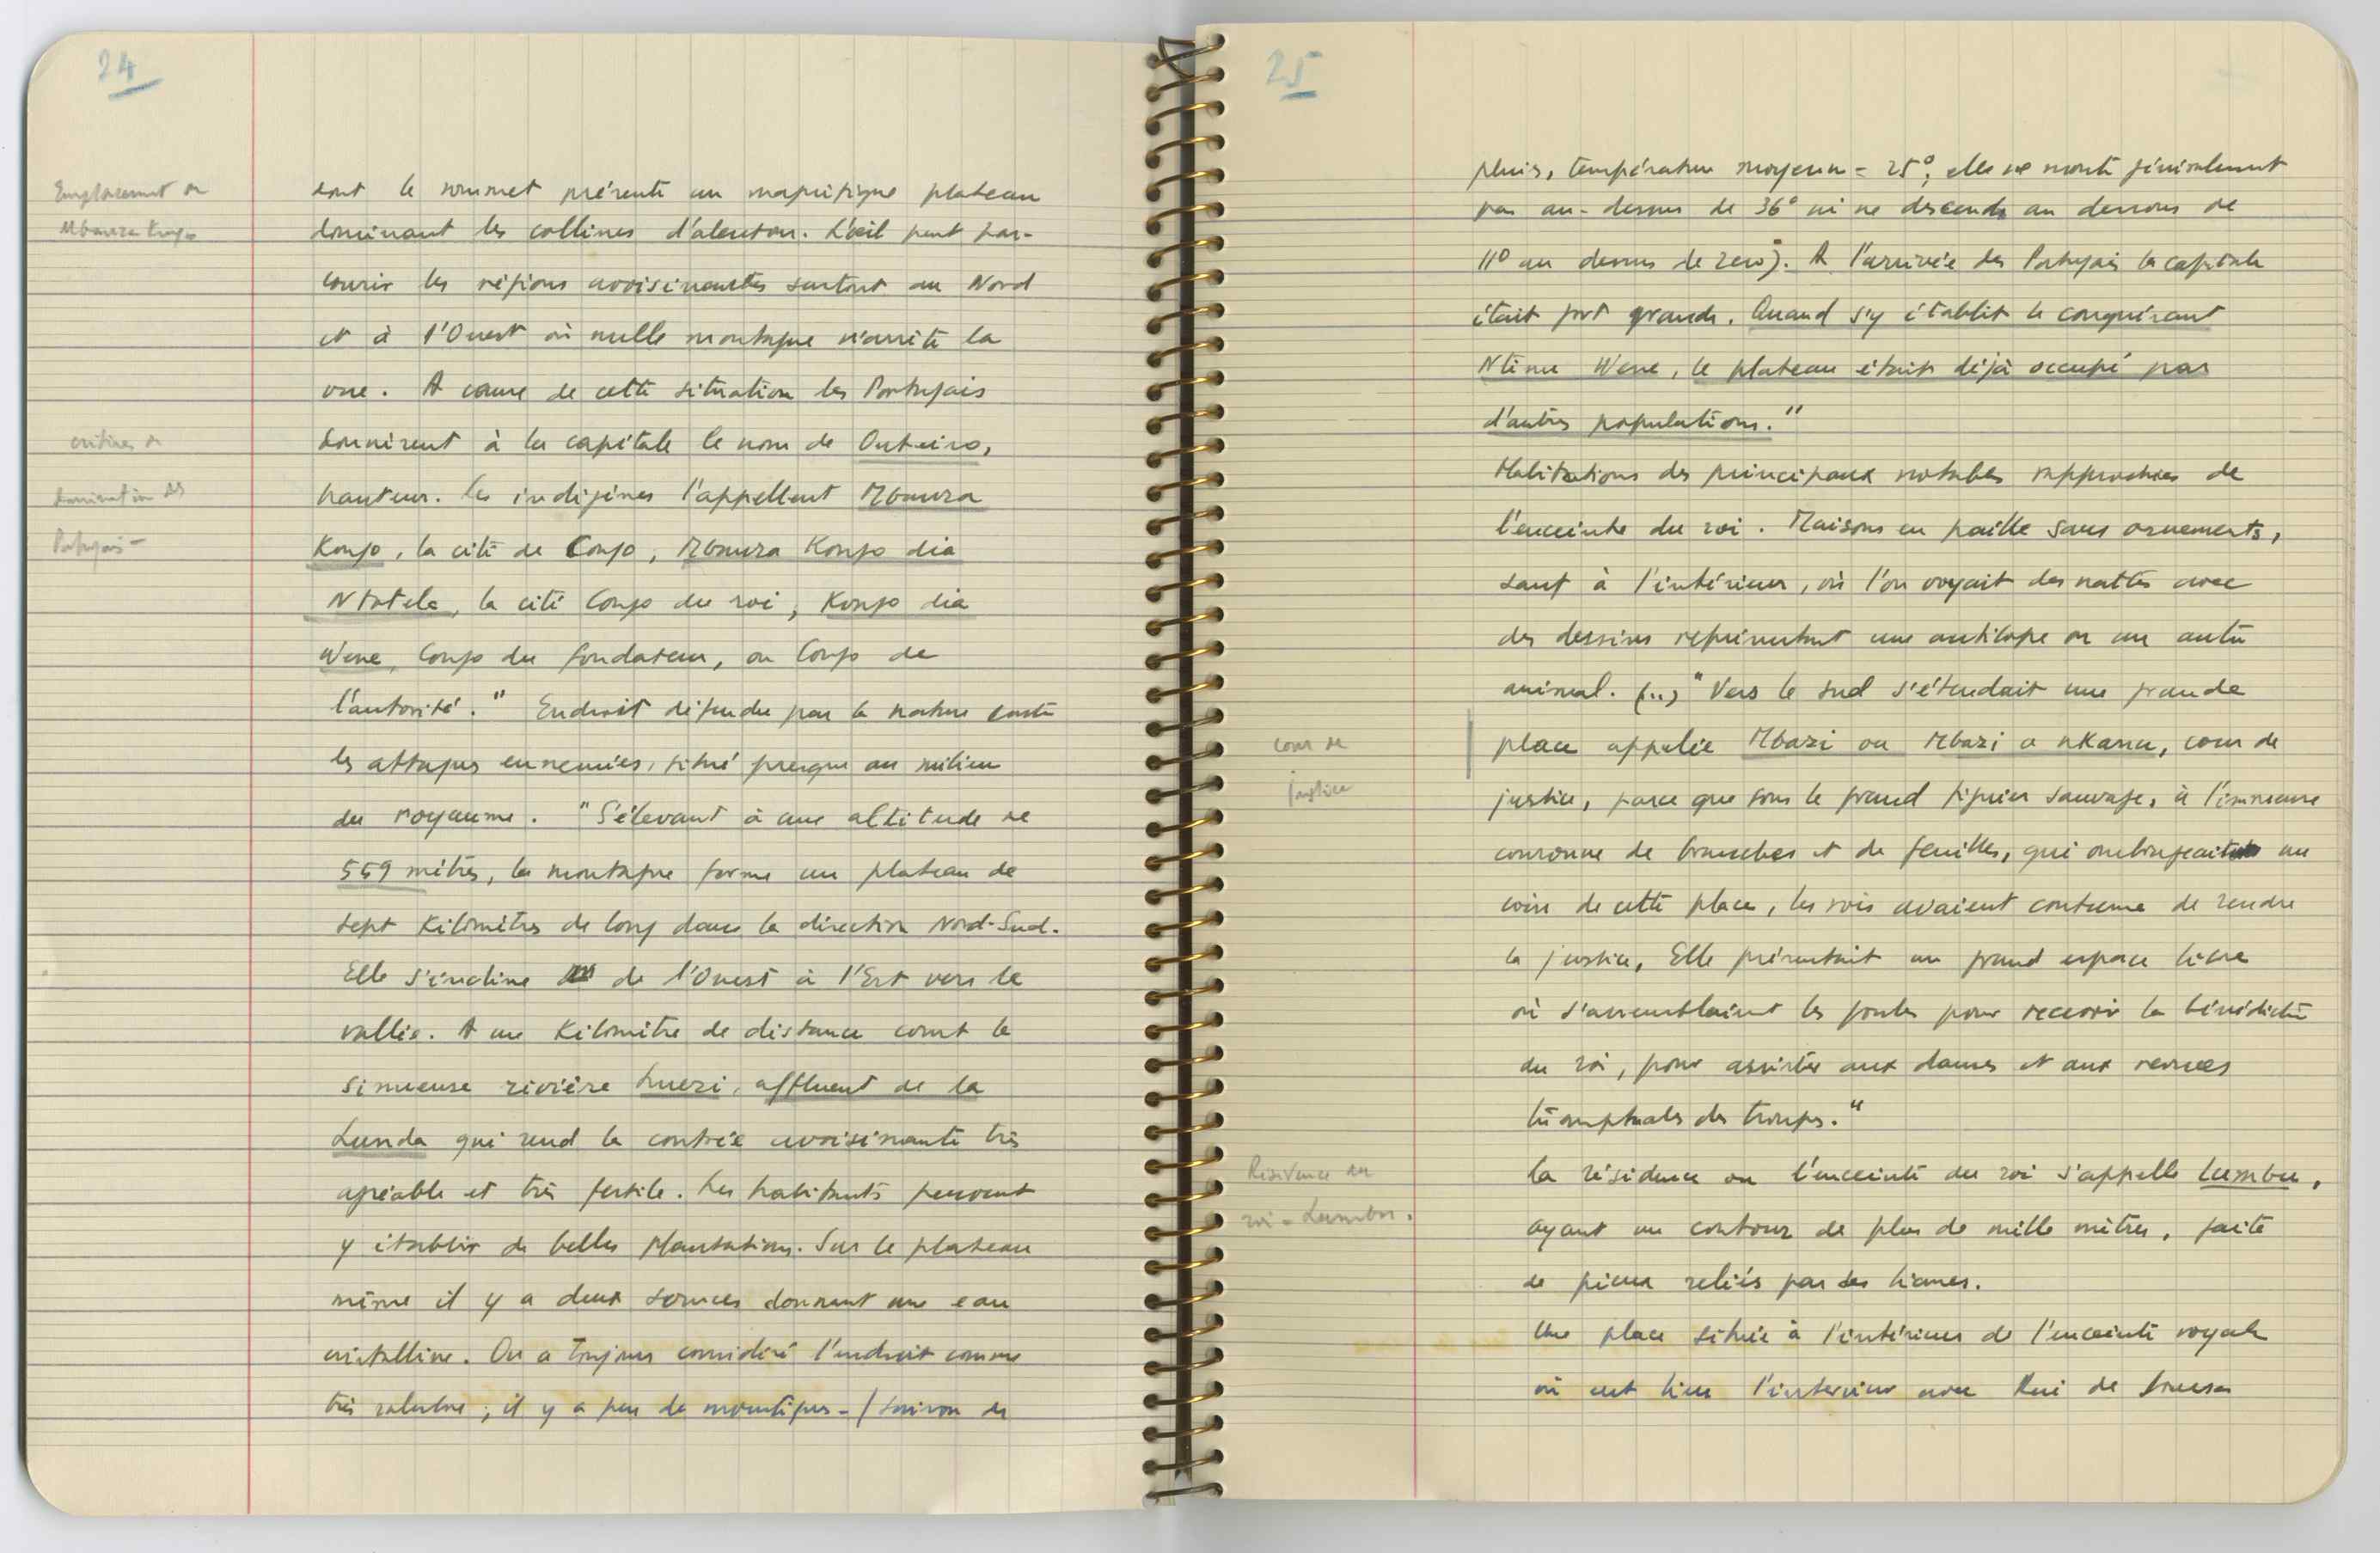 24
Emplacement de
Mbanza Kongo
dont le sommet présente un magnifique plateau
dominant les collines d'alentour. L'œil peut par-
courir les régions avoisinantes surtout au Nord
et à l'Ouest où nulle montagne n'arrête la
vue. A cause de cette situation les Portugais
donnèrent à la capitale le nom de Outeiro,
hauteur. Les indigènes l'appellent Mbanza
Kongo, la cité de Congo, Mbanza Kongo dia
Ntotela, la cité Congo du roi, Kongo dia
Wene, Congo du fondateur, ou Congo de
l'autorité." Endroit défendu par la nature contre
les attaques ennemies, situé presque au milieu
du royaume. "S'élevant à une altitude de
559 mètres, la montagne forme un plateau de
sept Kilomètres de long dans la direction Nord-Sud.
Elle s'incline de l'Ouest à l'Est vers la
vallée. A un Kilomètre de distance court la
sinueuse rivière Luezi, affluent de la
Lunda qui rend la contrée avoisinante très
agréable et très fertile. Les habitants peuvent
y établir de belles plantations. Sur le plateau
même il y a deux sources donnant une eau
cristalline. On a toujours considéré l'endroit comme
très salubre; il y a peu de moustiques - (saison des
critères de
domination des
Portugais -
25
pluies, température moyenne = 25°; elle ne monte généralement
pas au-dessus de 36° ni ne descend au dessous de
11° au dessus de zéro). A l'arrivée des Portugais la capitale
était fort grande. Quand s'y établit le conquérant
Ntinu Wene, le plateau était déjà occupé par
d'autres populations."
Habitations des principaux notables rapprochées de
l'enceinte du roi. Maisons en paille sans ornements,
sauf à l'intérieur, où l'on voyait des nattes avec
des dessins représentant une antilope ou un autre
animal. (..) "Vers le sud s'étendait une grande
place appelée Mbazi ou Mbazi a nkanu, cour de
justice, parce que sous le grand figuier sauvage, à l'immense
couronne de branches et de feuilles, qui ombrageait un
coin de cette place, les rois avaient coutume de rendre
la justice. Elle présentait un grand espace libre
où s'assemblaient les foules pour recevoir la bénédiction
du roi, pour assister aux danses et aux revues
triomphales des troupes."
La résidence ou l'enceinte du roi s'appelle Lumbu,
ayant un contour de plus de mille mètres, faite
de pieux reliés par des lianes.
Une place située à l'intérieur de l'enceinte royale
où eut lieu l'interview avec Rui de Sousa
cour de
justice
Résidence du
roi = Lumbu.